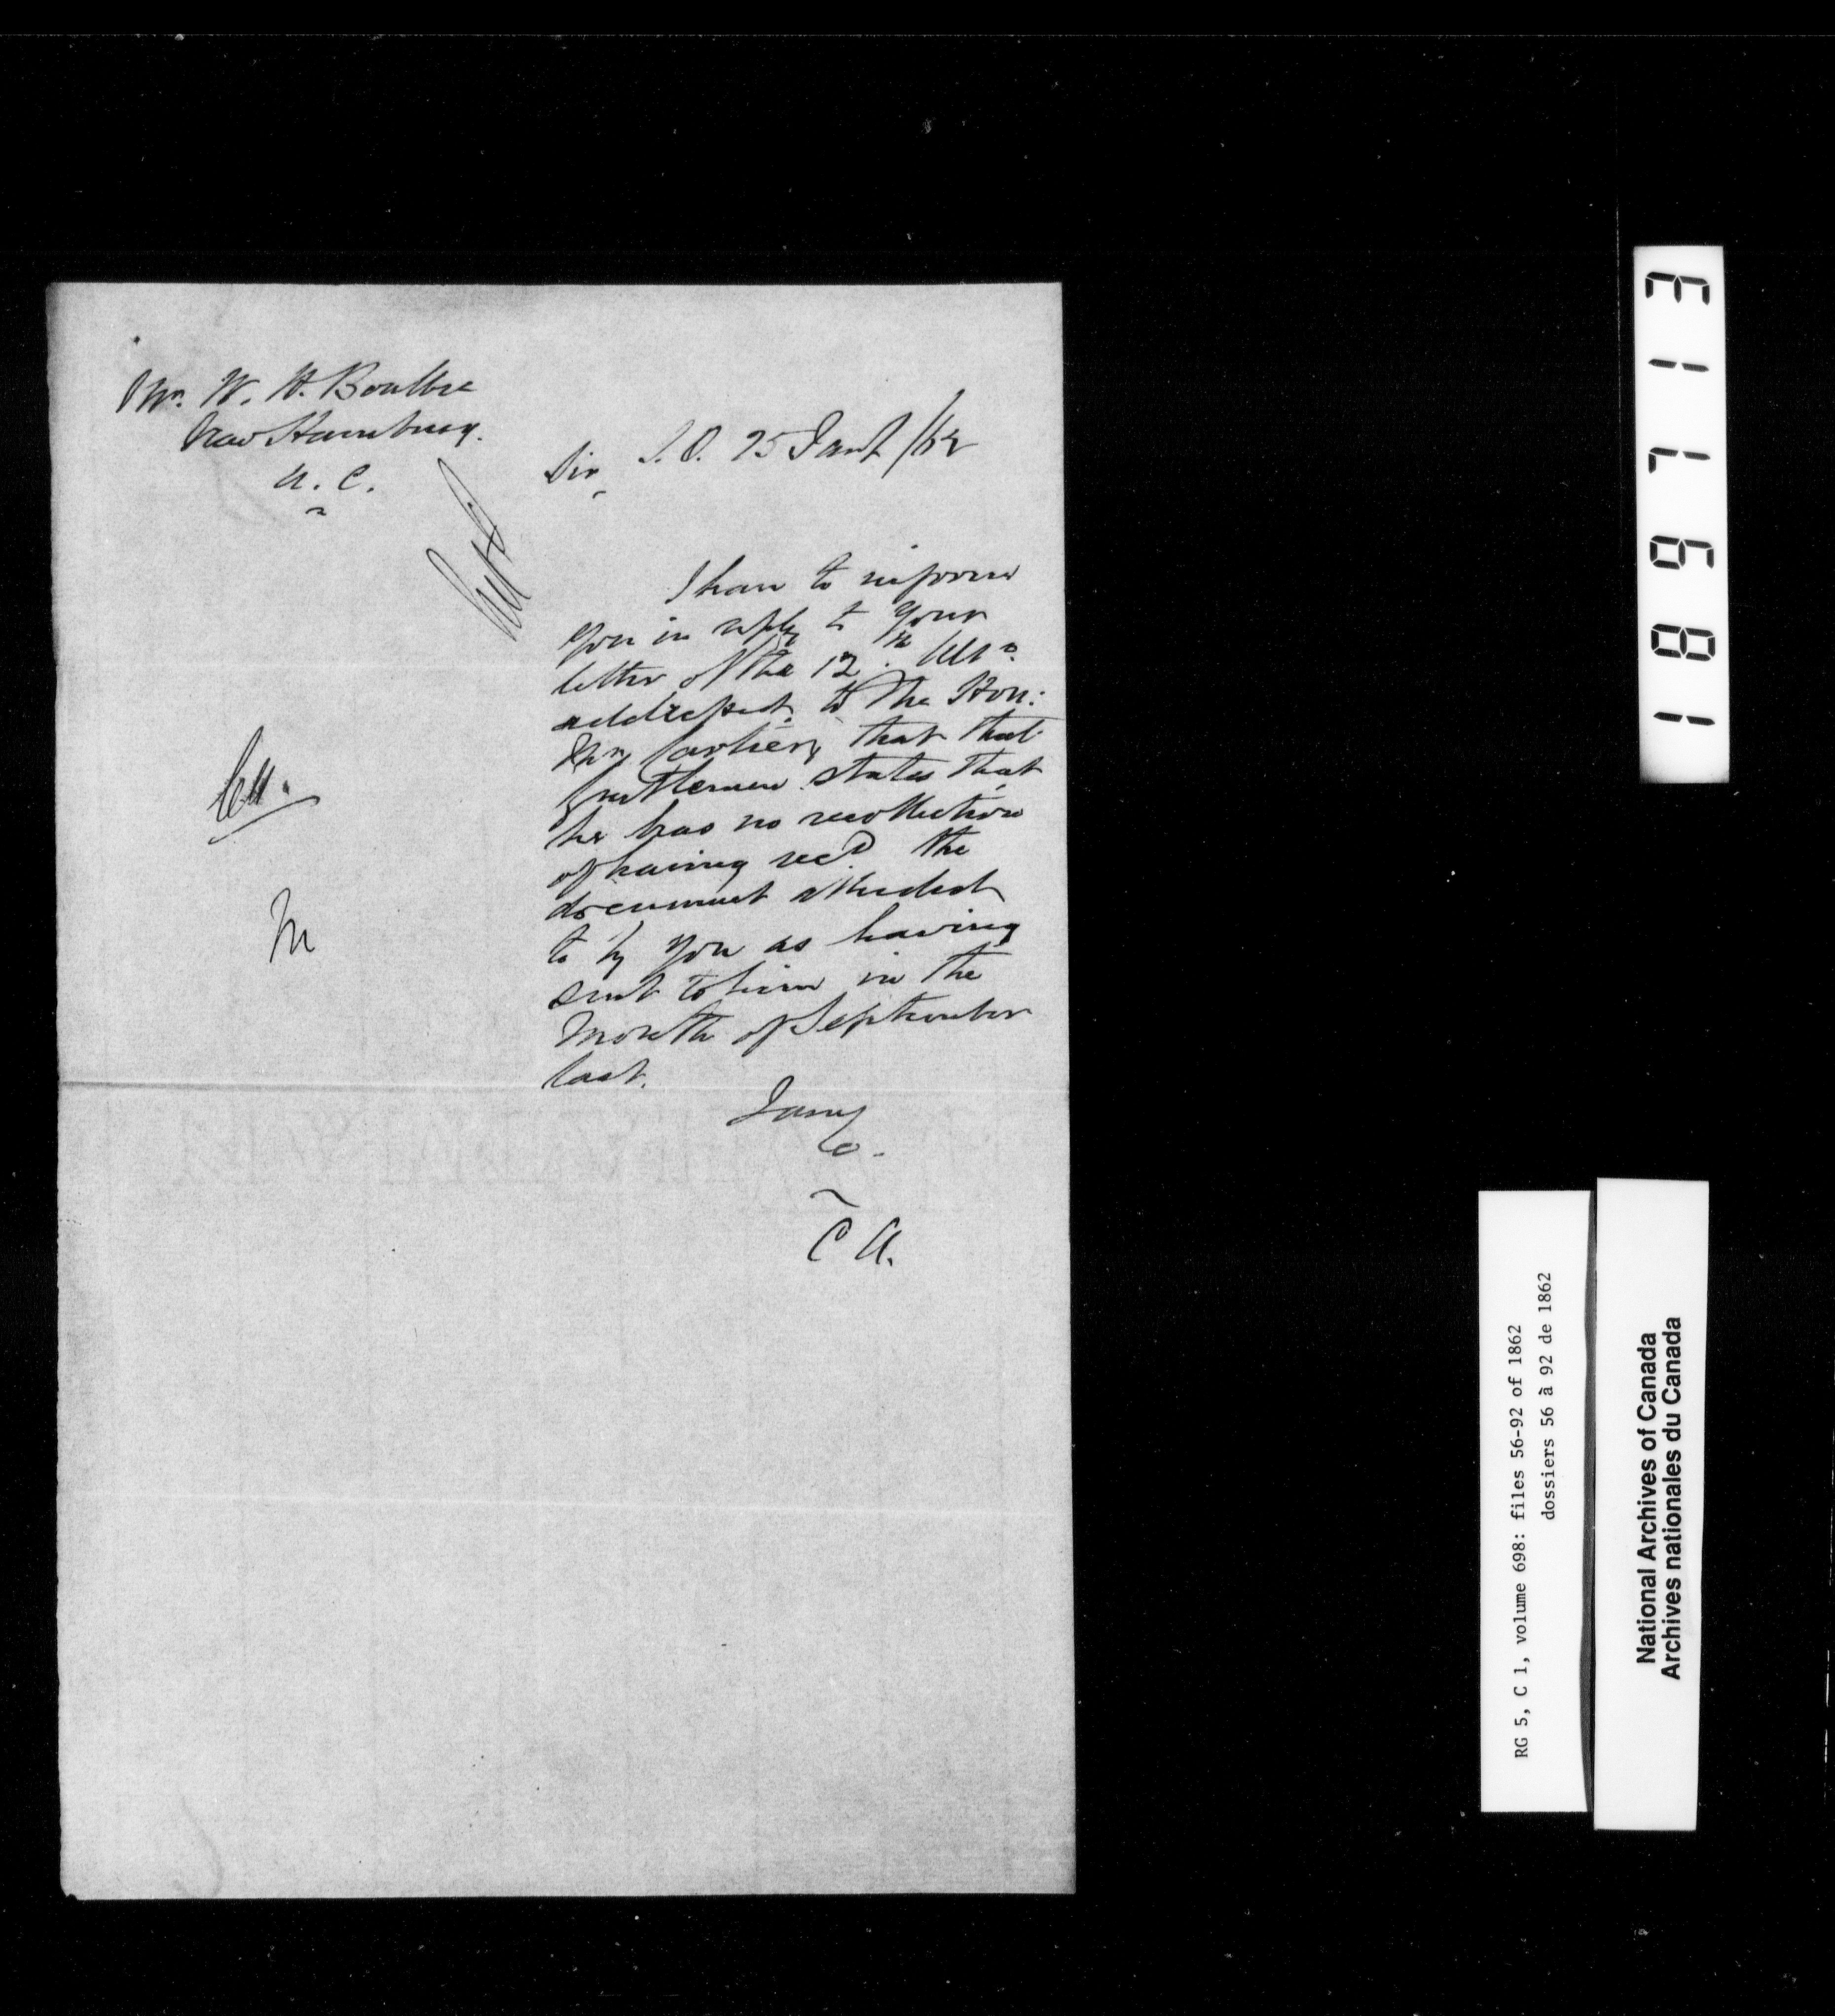 Mr. W. H. Boullee
New Hamburg.
U. C.
S. O. 25 Jany /62
Sir
I have to inform
you in reply to your
letter of the 12th. Ulto.
addressed to the Hon:
Mr. Cartier, that that
gentleman states that
he has no recollection
of having recd. the
document alluded
to by you as having
sent to him in the
Month of September
last.
I am
&.
C A.
M
31 7 6 8 1
RG 5, C 1, volume 698: files 56-92 of 1862
dossiers 56 à 92 de 1862
National Archives of Canada
Archives nationales du Canada